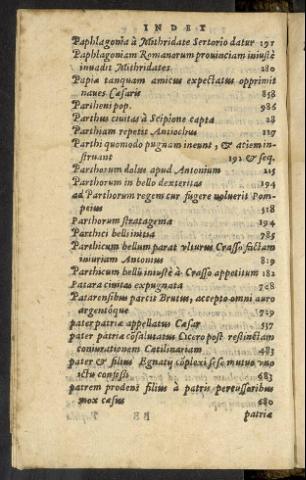 INDET
Paphlagonia à Mithridate Sertorio datur 191
Paphlagoniam Romanorum prouinciam iniustè
inuadit Mithridates 180
Papia tanquam amicus expectatus opprimit
naues Cæsaris 858
Partheni pop. 986
Parthus ciuitas à Scipione capta 28
Parthiam repetit Antiochus 127
Parthi quomodo pugnam ineunt, & atiem in-
struant 191 & seq.
Parthorum dolus apud Antonium 215
Parthorum in bello dexteritas 194
ad Parthorum regem cur fugere uoluerit Pom-
peius 518
Parthorum stratagema 194
Parthici belli initia 785
Parthicum bellum parat vlturus Crasso factam
iniuriam Antonius 819
Parthicum bellũ iniustè à Crasso appetitum 181
Patara ciuitas expugnata 768
Patarensibus parcit Brutus, accepto omni auro
argentóque 719
pater patriæ appellatus Cæsar 537
pater patriæ cõsalutatus Cicero post restinctam
coniurationem Catilinariam 483
pater & filius Egnatij cõplexi sese mutuo vno
ictu confossi 683
patrem prodens filius à patris percussoribus
mox cæsus 680
patriæ